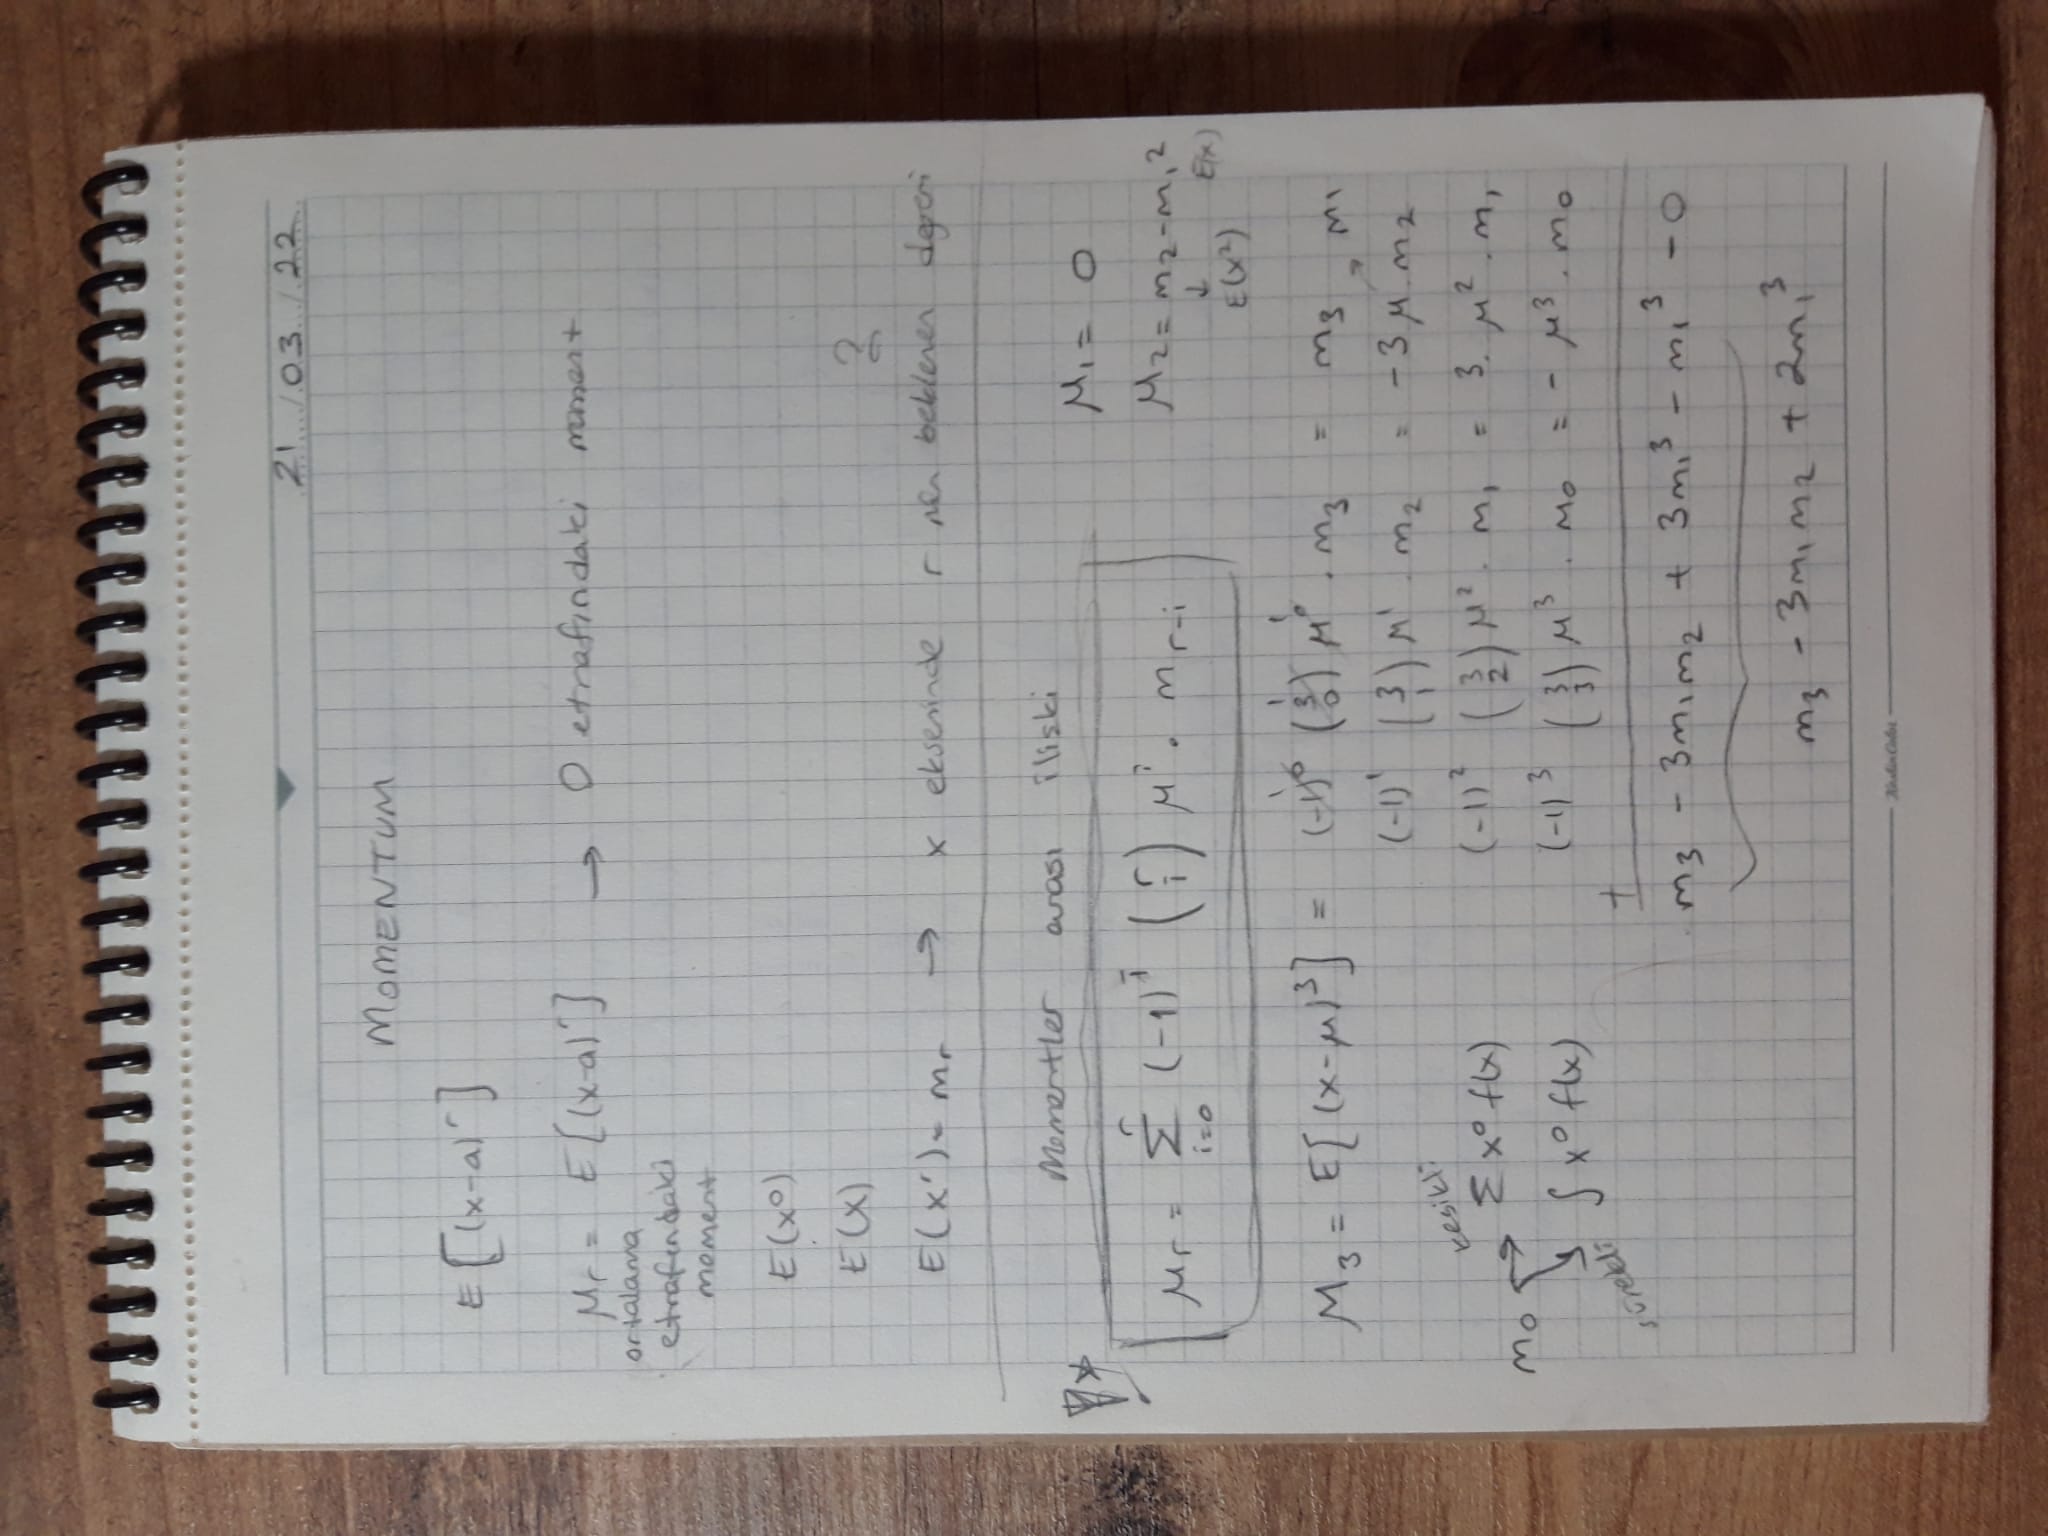 21 / 03 / 22
MOMENTUM
E[(x-a)^r]
μr = E[(x-a)^r] → 0 etrafındaki moment
ortalama
etrafındaki
moment
E(x⁰)
E(x) ?
E(x^r) = mr → x ekseninde r nın beklenen değeri
Momentler arası ilişki
μ1 = 0
μr = Σ i=0 r (-1)^i (r i) μ^i · m r-i
μ2 = m2 - m1²
E(x²) E(x)
μ3 = E[(x-μ)³] = (-1)⁰ (3 0) μ⁰ · m3 = m3 → m1
(-1)¹ (3 1) μ¹ · m2 = -3μ · m2
kesikli
m0 → Σ x⁰ f(x) (-1)² (3 2) μ² · m1 = 3 · μ² · m1
∫ x⁰ f(x) (-1)³ (3 3) μ³ · m0 = - μ³ · m0
sürekli
+
m3 - 3m1m2 + 3m1³ - m1³ - 0
m3 - 3m1m2 + 2m1³